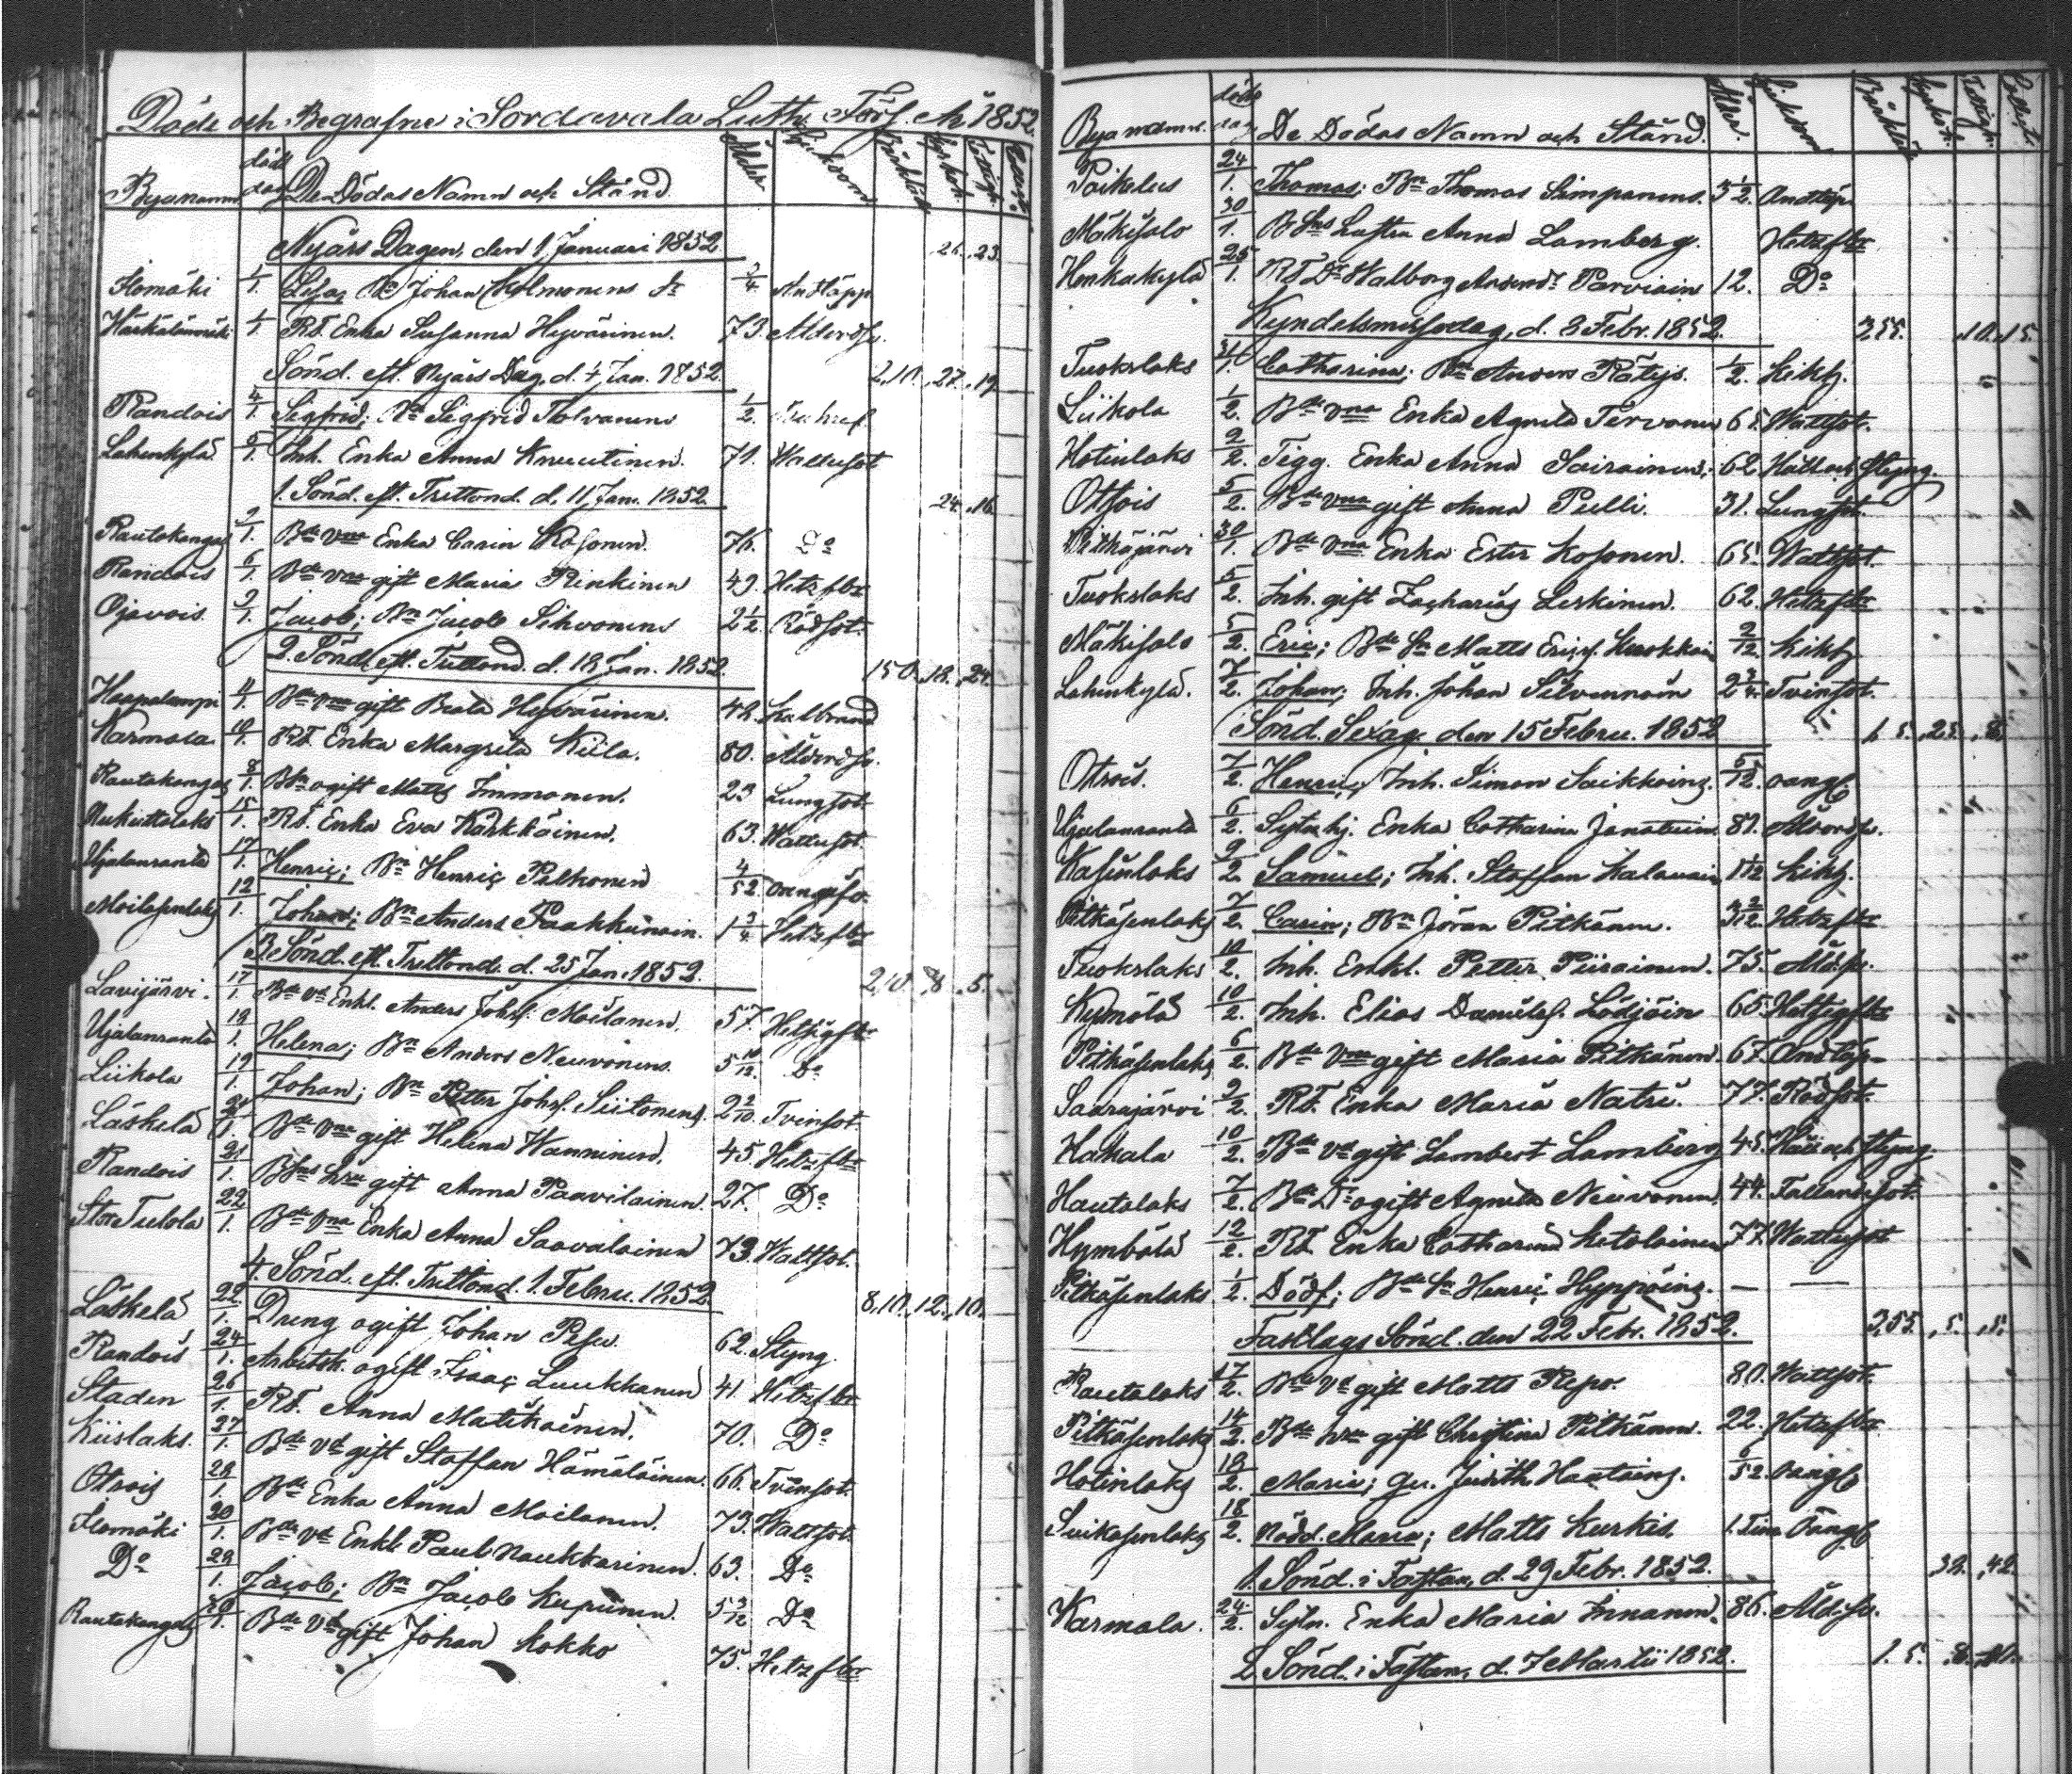 Döde och Begrafne i Sordavala Luth. Förs. År 1852.
Byanamn döds dag De Dödas Namn och Stånd Ålder Sjukdom
Nyårs Dagen, den 1 Januari 1852. 26. 23.
Ilomäki 1/1. Johan 3/4 Andtäpp
1/1. Rt. Enka Susanna Hyvärinen. 73. Ålderdsv.
Sönd. eft. Nyårs Dag, d. 4 Jan. 1852. 2,10. 27. 19.
Randois 4/1. Segfrid; Bn Segfrid Tolvanens 1/2.
Lahenkylä 5/1. Inh. Enka Anna Knuutinen. 71. Wattusot
1. Sönd. eft. Trettond. d. 11 Jan. 1852. 24. 16.
Rautakangas 2/1. Bde Vna Enka Carin Kosonen. 76. Do
Randois 6/1. Bde vna gift Maria Rinkinen 49. Hetz fbr
Ojavois 9/1. Jacob; Bn Jacob Sihvonens 2 1/2. Rödsot.
2. Sönd. eft. Trettond. d. 18 Jan. 1852. 150. 18. 24.
Haapalampi 11/1. Bde vna gift Beata Hyvärinen. 42. Kalbrand
Karmala 10/1. Rt. Enka Margreta Kiila. 80. Ålderdsv.
Rautakangas 8/1. Bn ogift Matts Immonen. 23 Lungsot.
15/1. Rt. Enka Eva Karkkäinen. 63. Wattusot.
Ujalanranta 17/1. Henric; Bn Henric Pelkonen 4/52.
Moilasenlaks 12/1. Johan; Bn Anders Paakkunain. 1 3/4 Hetz fbr
3. Sönd. eft. Trettond. d. 25 Jan. 1852. 2,10. 8. 5.
Lavijärvi. 17/1. Bde vd Enkl. Anders Johss. Moilanen. 57. Hetzig fbr
Ujalanranta 19/1. Helena; Bn Anders Neuvonens. 5 10/12. Do
Liikola 19/1. Johan; Bn Petter Johss. Siitonens. 2 2/10. Tvinsot.
Läskelä 21/1. Bde vna gift Helena Wanninen. 45. Hetz fbr
Randois 21/1. Bdns hru gift Anna Paavilainen. 27. Do
Stor Tulola 22/1. Bde vna Enka Anna Saavalainen 73. Wattsot.
4. Sönd. eft. Trettond. 1. Febru. 1852. 8,10. 12. 10.
Läskelä 22/1. Dreng ogift Johan Pesu. 62. Styng.
Randois 24/1. Arbetsk. ogift Isaac Luukkanen 41. Hetz fbr
Staden 26/1. Rt. Anna Matikainen. 70. Do
Kiislaks. 27/1. Bde vd gift Staffan Hämäläinen. 66. Tvinsot.
Otrois 29/1. Bde Enka Anna Moilanen. 73. Wattsot.
Ilomäki 20/1. Bde vd Enkl. Paul Naukkarinen. 63. Do
Do 29/1. Jacob; Bn Jacob Kupiainen. 5 3/12 Do
Rautakangas Bde vd gift Johan Kokko 75. Hetz fbr
Byanamn. döds dag De Dödas Namn och Stånd. Ålder. Sjukdom
Poikelus 24/1. Thomas; Bn Thomas Simpanens. 3 1/2. Andtäp.
Mäkisalo 30/1. Anna Lamberg. Hetz fbr
Honkakylä 25/1. Rt. Dr Walborg Parviain 12. Do
Kyndelsmässodag, d. 8 Febr. 1852. 3,55. 10. 15.
Tuokslaks 31/1. Catharina; Bn Anders Rätys. 1/2. Kikh.
Liikola 1/2. Bde vna Enka Agneta Tervonen 65. Wattsot.
Hotinlaks 2/2. Tigg. Enka Anna Sairainen. 62. Håll och Styng.
Ottois 5/2. Bde vna gift Anna Pulli. 31. Lungsot.
Pitkäjärvi 30/1. Bde vna Enka Ester Kosonen. 65. Wattsot.
Tuokslaks 5/2. Inh. gift Zacharias Leskinen. 62. Hetz fbr
Mäkisalo 5/2. Eric; Bde Sn Matts Ericss. 2/12 Kikh
Lahenkylä. 7/2. Johan; Inh. Johan Silvennoin 2 3/4. Tvinsot.
Sönd. Sexag. den 15 Febru. 1852 1. 5. 25. 8.
Otrois. 7/2. Henric; Inh. Simon Saikkoins. 5/12.
Ujalanranta 6/2. Sytn. hj. Enka Catharina Janatuin. 81. Ålderds.
Kasinlaks 9/2. Samuel; Inh. Staffan Kalanain 1 1/12 Kikh.
Pitkäsenlaks 7/2. Carin; Bn Jöran Pitkänen. 3 2/12. Hetz fbr
Tuokslaks 10/2. Inh. Enkl. Petter Piirainen. 75. Åld. sv.
Kymölä 10/2. Inh. Elias Danielss. Lödjöin 65. Hetsig fbr
Pitkäsenlaks 6/2. Bde vna gift Maria Pitkänen. 67. Andtäp
Saarajärvi 9/2. Rt. Enka Maria Natri. 77. Rödsot.
Hakala 10/2. Bde vd gift Lambert Lamberg 45. Håll och Styng.
Hautalaks 7/2. Bde Dr ogift Agneta Neuvonen. 44. Fallandesot.
Hymbölä 12/2. Rt. Enka Catharina Ketolainen 77. Wattusot
Pitkäsenlaks 1/2. Dödf.; Bde Sn Henric Hyppöins. — —
Fastlags Sönd. den 22 Febr. 1852. 3,55. 5. 5.
Rautalaks 17/2. Bde vd gift Matts Repo. 80. Wattsot.
Pitkäsenlaks 14/2. Bde hru gift Christina Pitkänen. 22. Hetz fbr
Hotinlaks 18/2. Maria; Qv. Judith Hautains. 6/52.
Suikasenlaks 18/2. Nödd. Maria; Matts Kurkis. 1. Tim
1. Sönd. i Fastan, d. 29 Febr. 1852. 32. 42.
Karmala. 24/2. Sytn. Enka Maria Innanen. 86. Åld. sv.
2. Sönd. i Fastan, d. 7 Martii 1852. 1. 5.